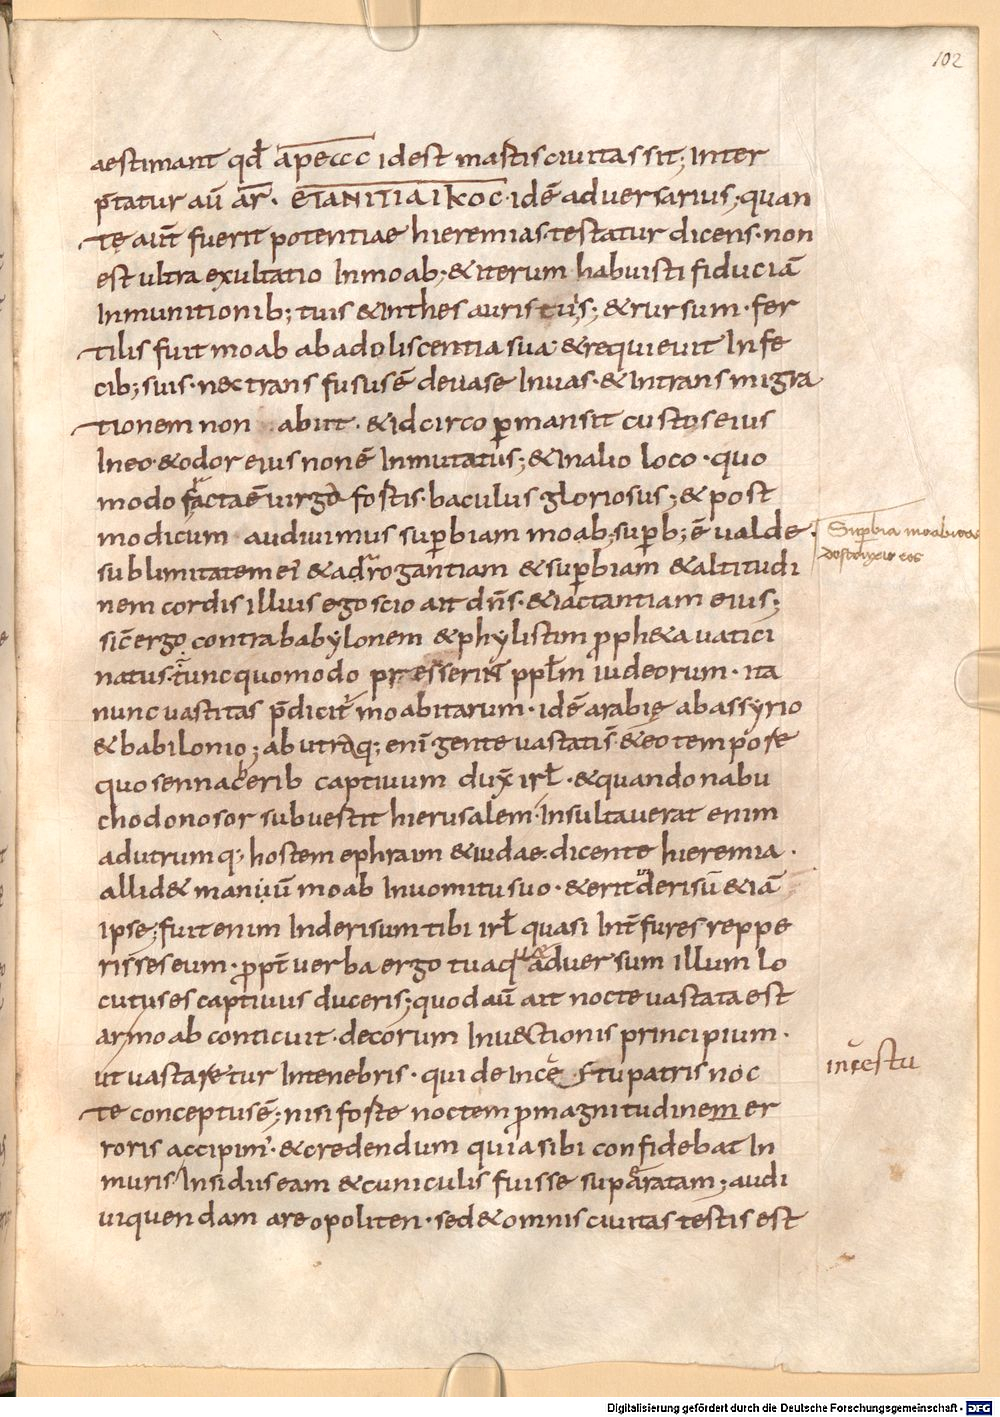 102
aestimant qđ ΑΡΕCCC idest mastis ciuitas sit; Inter
p̄tatur aū ar̄. ΕΤΑΝΙΤΙΑΙΚΟC. idē aduersarius; quan
tę aut̄ fuerit potentiae hieremias testatur dicens. non
est ultra exultatio Inmoab; & iterum habuisti fiduciā
Inmunitionib; tuis & Inthesauris tuis; & rursum. fer
tilis fuit moab abadoliscentia sua. & requieuit Infe
cib; suis. nec transfusus ē deuase Inuas. & Intransmigra
tionem non abiit. & idcirco ꝑmansit custos eius
Ineo. & odor eius non ē Inmutatus; & Inalio loco. quo
modo fracta ē uirga fostis. baculus gloriosus; & post
modicum audiuimus suꝑbiam moab; suꝑb; ē ualde
sublimitatem ei & adrogantiam & suꝑbiam & altitudi
nem cordis illius ego scio ait dn̄s. & iactantiam eius;
sic̄ ergo contra babylonem & phylistim proph&a uatici
natus. tunc quomodo presserint pplm̄ iudeorum. ita
nunc uastitas p̄dicit moabitarum. idē arabię abassyrio
& babilonio; abutraq; enī gente uastatis. & eo tempore
quo sennacherib captiuum dux̄ irl̄. & quando nabu
chodonosor subuestit hierusalem. Insultauerat enim
adutrumq; hostem ephraim & iudae. dicente hieremia.
allid& manuū moab Inuomitu suo. & erit Inderisū & iā
ipse; fuit enim Inderisum tibi irl̄ quasi Int̄ fures reppe
risses eum. ꝓpt̄ uerba ergo tua quae aduersum illum lo
cutus es captiuus duceris; quod aū ait nocte uastata est
armoab conticuit. decorum Inuectionis principium.
ut uastaretur Intenebris. qui de Incęstu patris noc
te conceptus ē; nisi foste noctem ꝓmagnitudinem er
roris accipim̄. & credendum quia sibi confidebat In
muris Insidiis eam & cuniculis fuisse suparatam; audi
ui quendam areopoliten. sed & omnis ciuitas testis est
Suꝑbia moabitas
incęstu
Digitalisierung gefördert durch die Deutsche Forschungsgemeinschaft - DFG